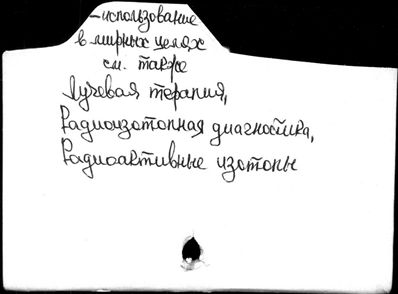 -использование
в мирных целях
см. также
Лучевая терапия,
Радиоизотопная диагностика,
Радиоактивные изотопы